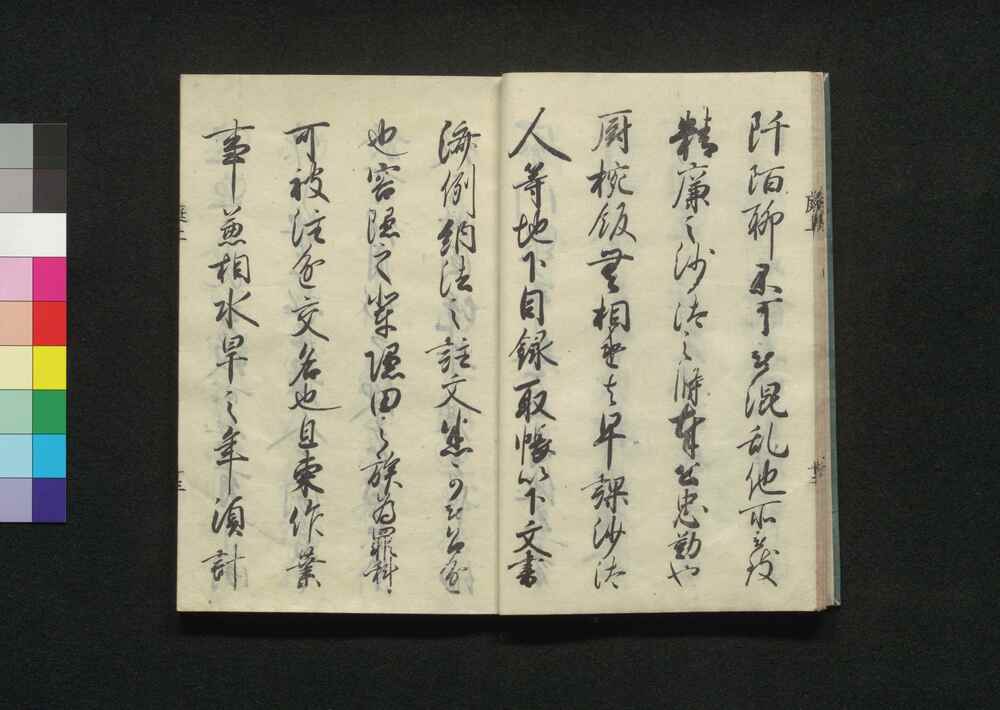 阡陌聊不可令混乱他所令致
精廉之沙汰之公忠勤也
厨椀飯無相違者早課沙汰
人等地下目録取帳以下文書
済例納法之註文悉可令召進
也容隠之輩隠田之族為罪科
可被注進交名也且東作業
事兼相水旱之年須計